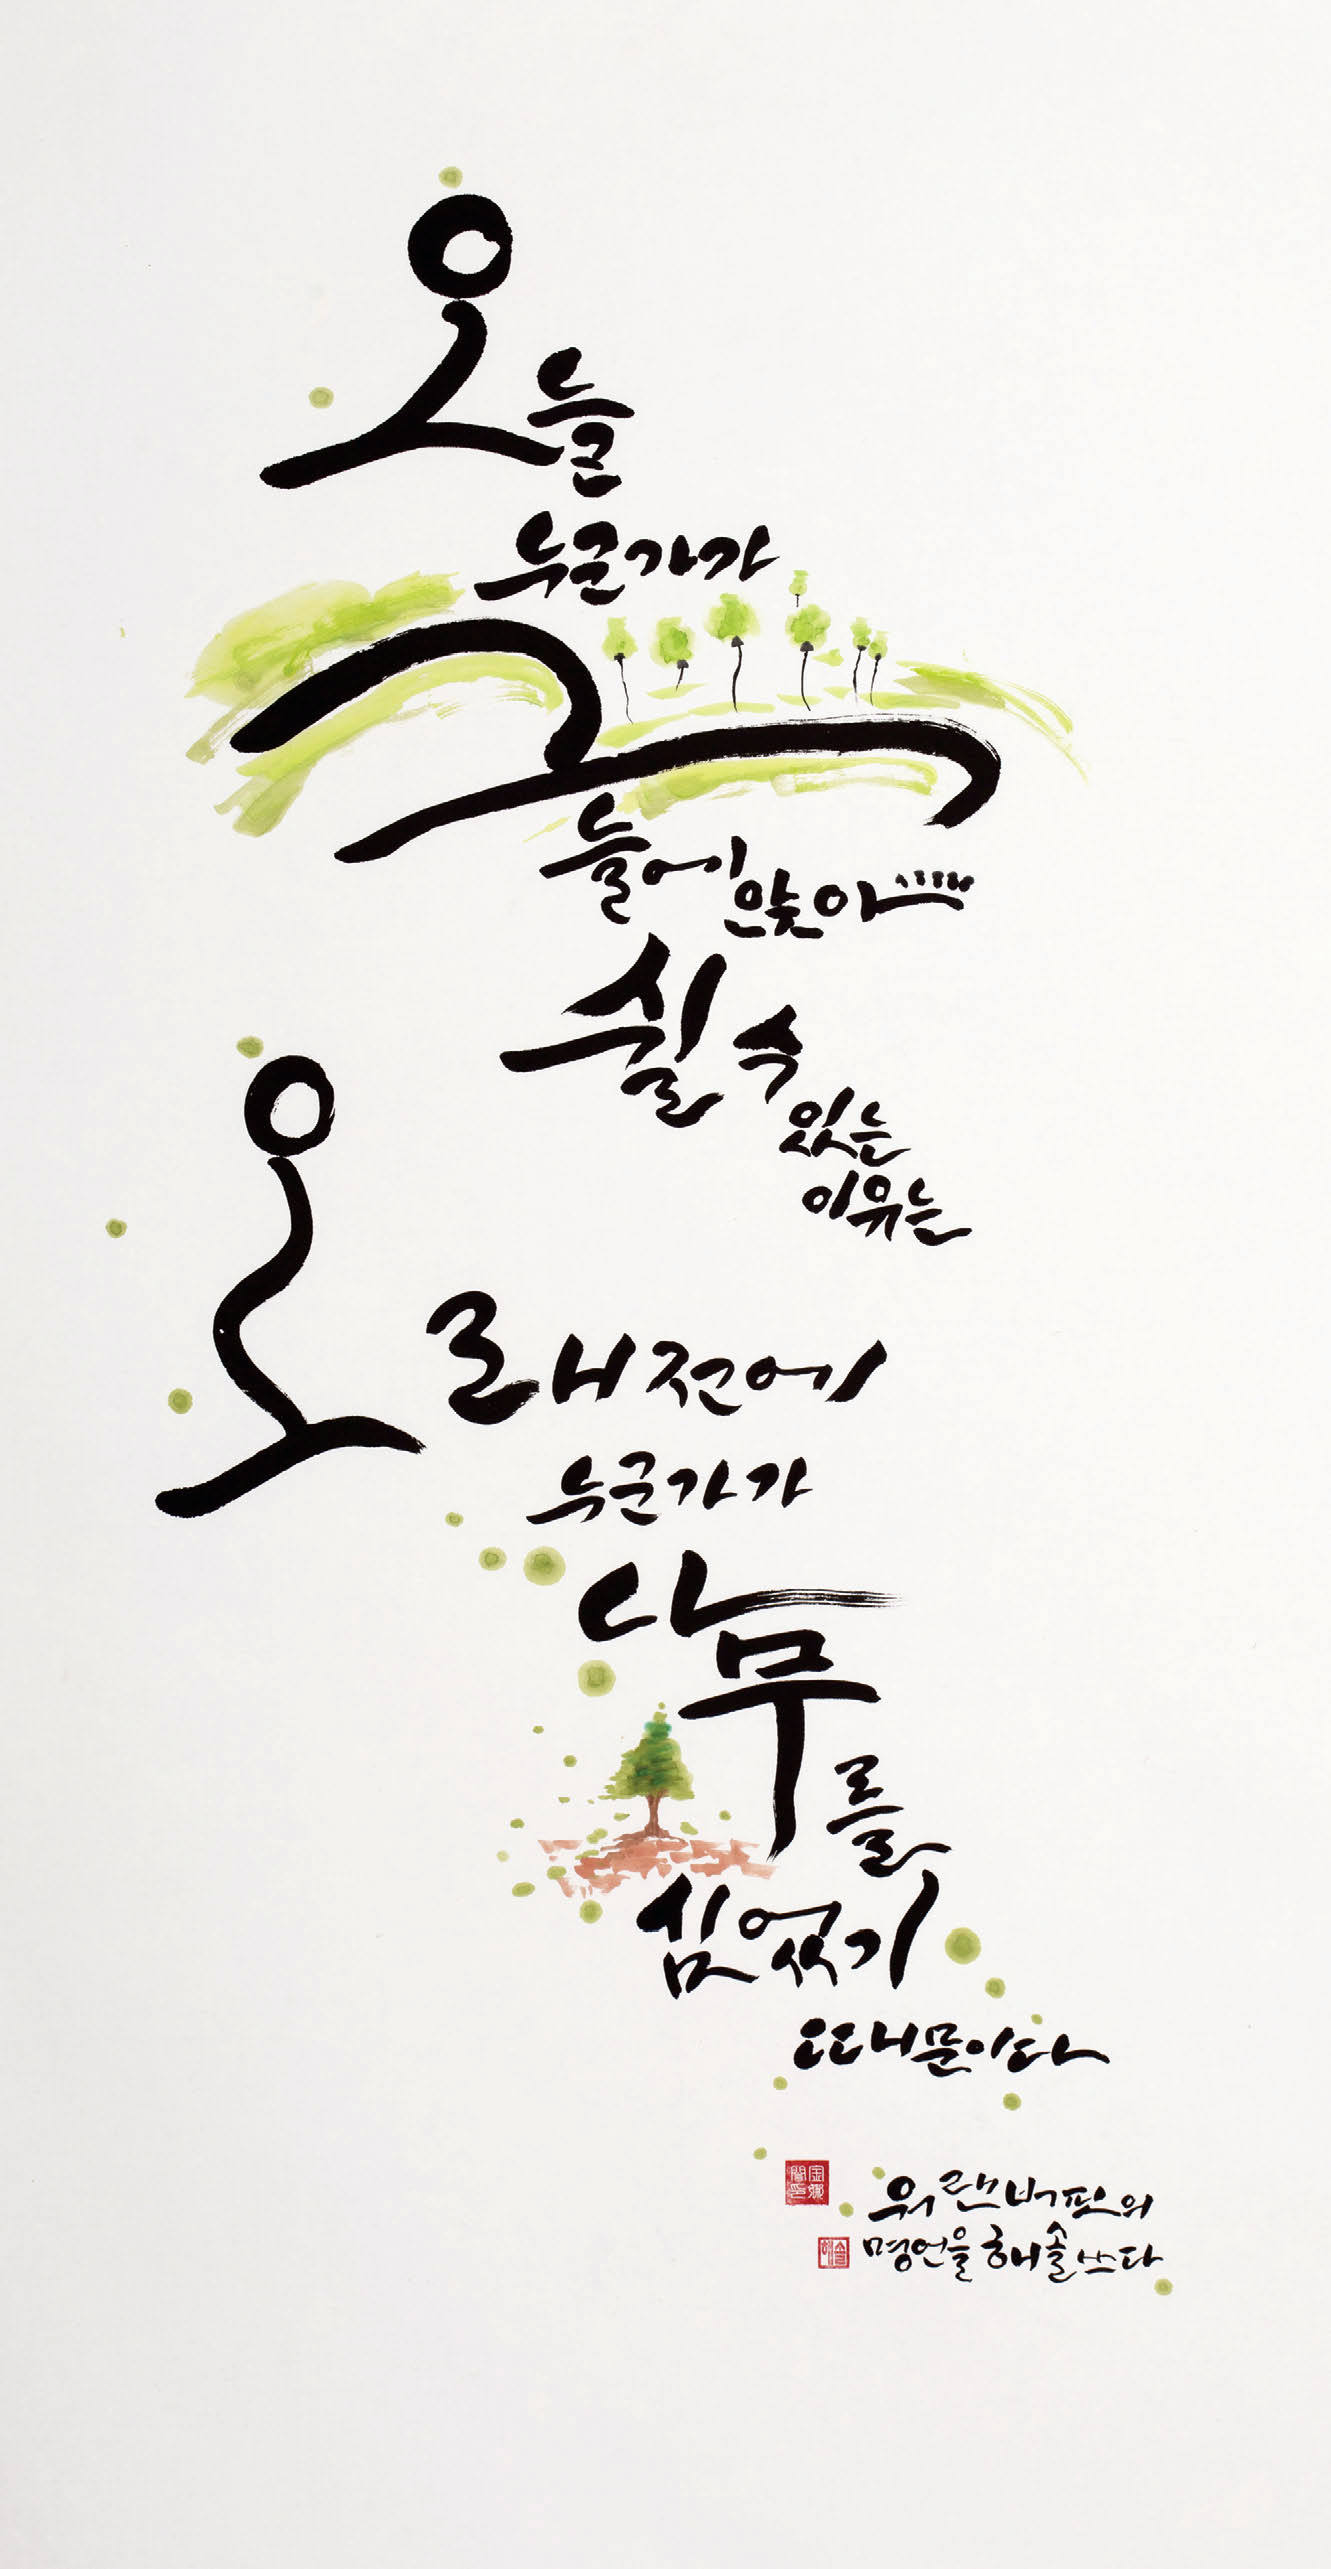 오늘
누군가가
그
늘에 앉아
쉴 수
있는
이유는
오래전에
누군가가
나무를
심었기
때문이다
워랜버핏의
명언을 해솔 쓰다